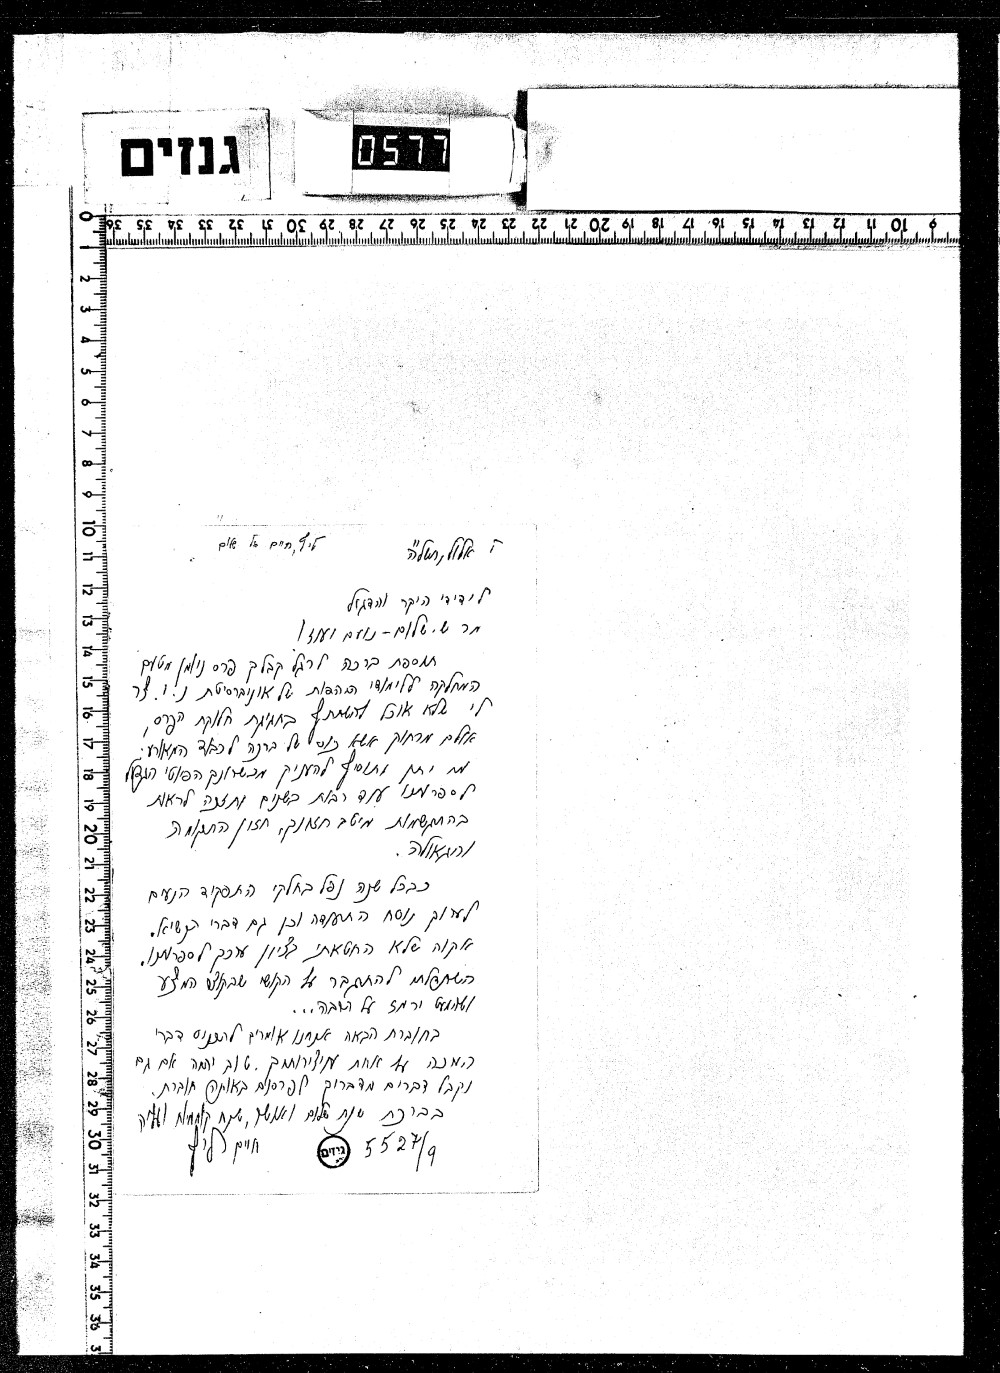 גנזים
0577
ליף, חיים אל שום
ז' אלול, תשל"ה
לידידי היקר והדגול
מר ש. שלום – נועם ועוז!
תוספת ברכה לרגל קבלת פרס ניומן מטעם
המחלקה ללימודי התרבות של אוניברסיטת נ.י. צר
לי שלא אוכל להשתתף בחגיגת חלוקת הפרס,
אולם מרחוק אשא כוס של ברכה לכבוד המאורע.
מי יתן ותוסיף להעניק מכשרונך הפיוטי הגדול
לספרותנו עוד רבות בשנים ותזכה לראות
בהתגשמות מיטב חזונך, חזון התקומה
והגאולה.
כבכל שנה נפל בחלקי התפקיד הנעים
לערוך נוסח התעודה וכן גם דברי הנשיא.
אקוה שלא החטאתי בציון ערכך לספרותנו.
השתדלתי להתגבר על הקושי שבקוצר המצע
ומעט ירמז על הרבה...
בחוברת הבאה אנחנו אומרים להכניס דברי
הערכה על אחת מיצירותיך. טוב יהיה אם גם
נקבל דברים מדבריך לפרסום באותה חוברת.
בברכת שנת שלום ואושר, שנת קוממיות ועליה
חיים ליף
גנזים
5527/9